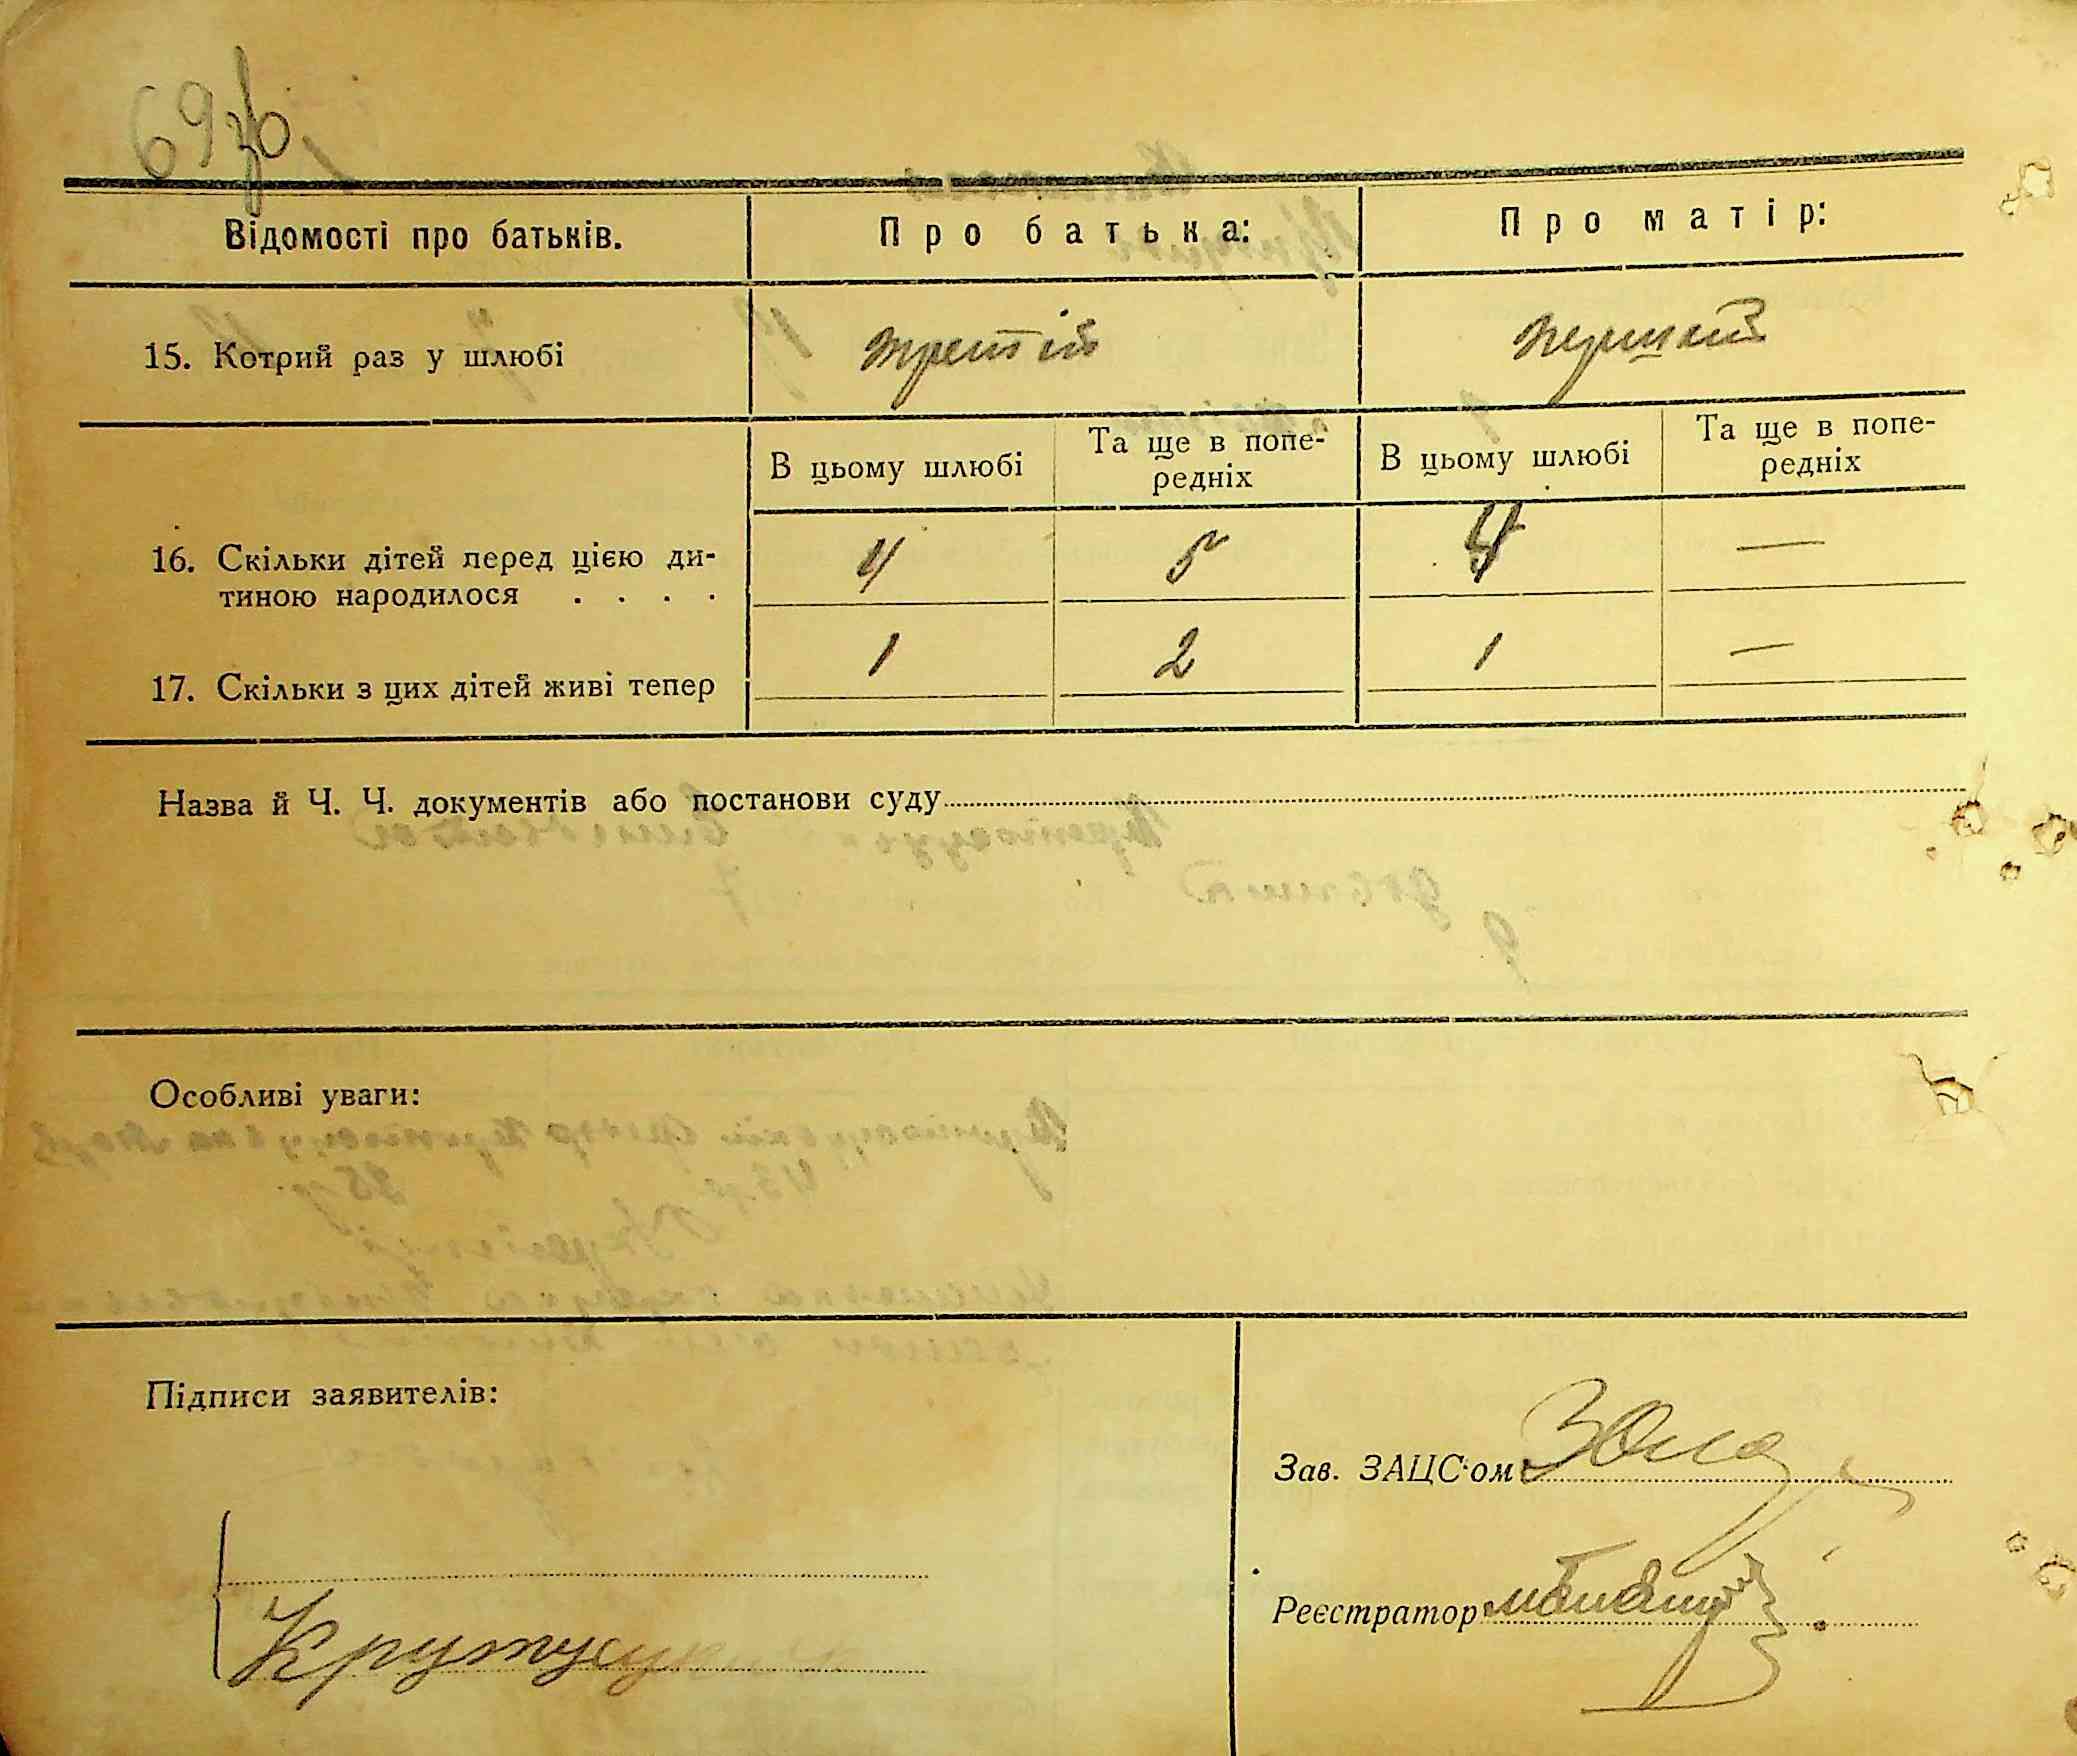 69 зв.
Відомості про батьків. Про батька: Про матір:
15. Котрий раз у шлюбі третій перший
В цьому шлюбі Та ще в попе-
редніх В цьому шлюбі Та ще в попе-
редніх
16. Скільки дітей перед цією ди-
тиною народилося . . . . 4 5 4 —
17. Скільки з цих дітей живі тепер 1 2 1 —
Назва й Ч. Ч. документів або постанови суду
Особливі уваги:
Підписи заявителів:
Зав. ЗАЦС'ом
Реєстратор